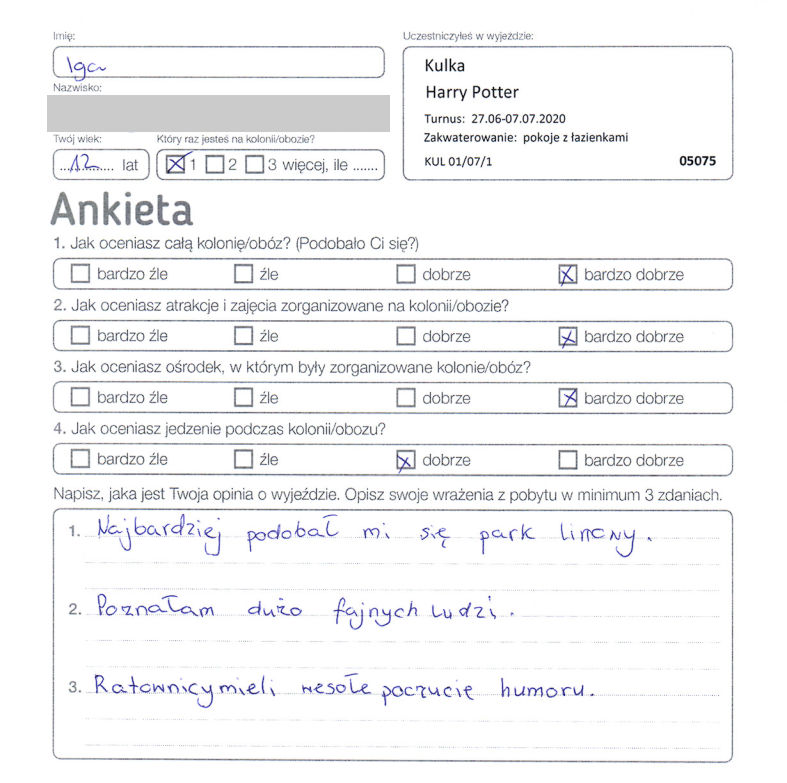 Imię:
Uczestniczyłeś w wyjeździe:
Iga
Kulka
Harry Potter
Turnus: 27.06-07.07.2020
Zakwaterowanie: pokoje z łazienkami
KUL 01/07/1 05075
Nazwisko:
Twój wiek: Który raz jesteś na kolonii/obozie?
12 lat 1 2 3 więcej, ile .......
Ankieta
1. Jak oceniasz całą kolonię/obóz? (Podobało Ci się?)
bardzo źle źle dobrze bardzo dobrze
2. Jak oceniasz atrakcje i zajęcia zorganizowane na kolonii/obozie?
bardzo źle źle dobrze bardzo dobrze
3. Jak oceniasz ośrodek, w którym były zorganizowane kolonie/obóz?
bardzo źle źle dobrze bardzo dobrze
4. Jak oceniasz jedzenie podczas kolonii/obozu?
bardzo źle źle dobrze bardzo dobrze
Napisz, jaka jest Twoja opinia o wyjeździe. Opisz swoje wrażenia z pobytu w minimum 3 zdaniach.
1. Najbardziej podobał mi się park linowy.
2. Poznałam dużo fajnych ludzi.
3. Ratownicy mieli wesołe poczucie humoru.